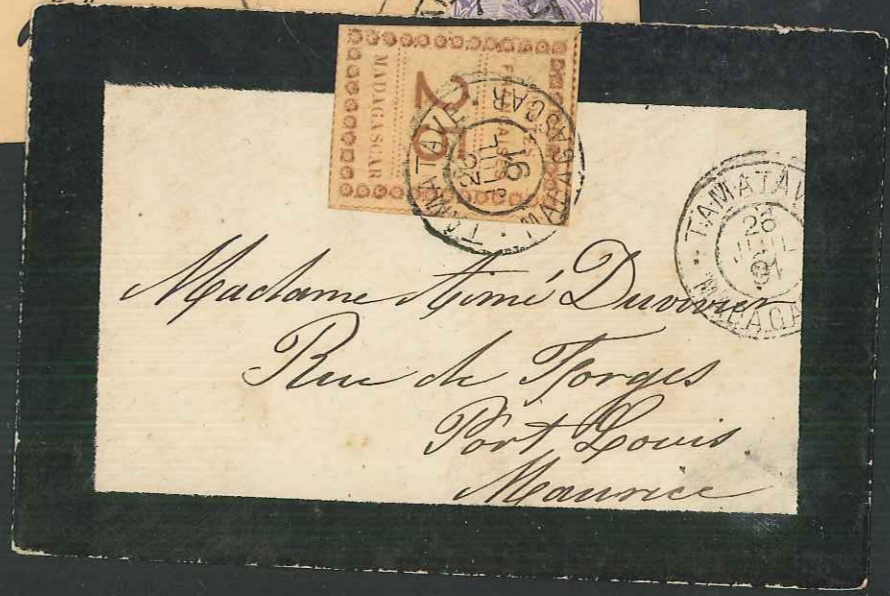 MADAGASCAR
25
TAMATAVE
26
JUIL
91
MADAGASCAR
TAMATAV
26
JUIL
91
MADAGA
Madame Aimé Duvivier
Rue de Forges
Port Louis
Maurice